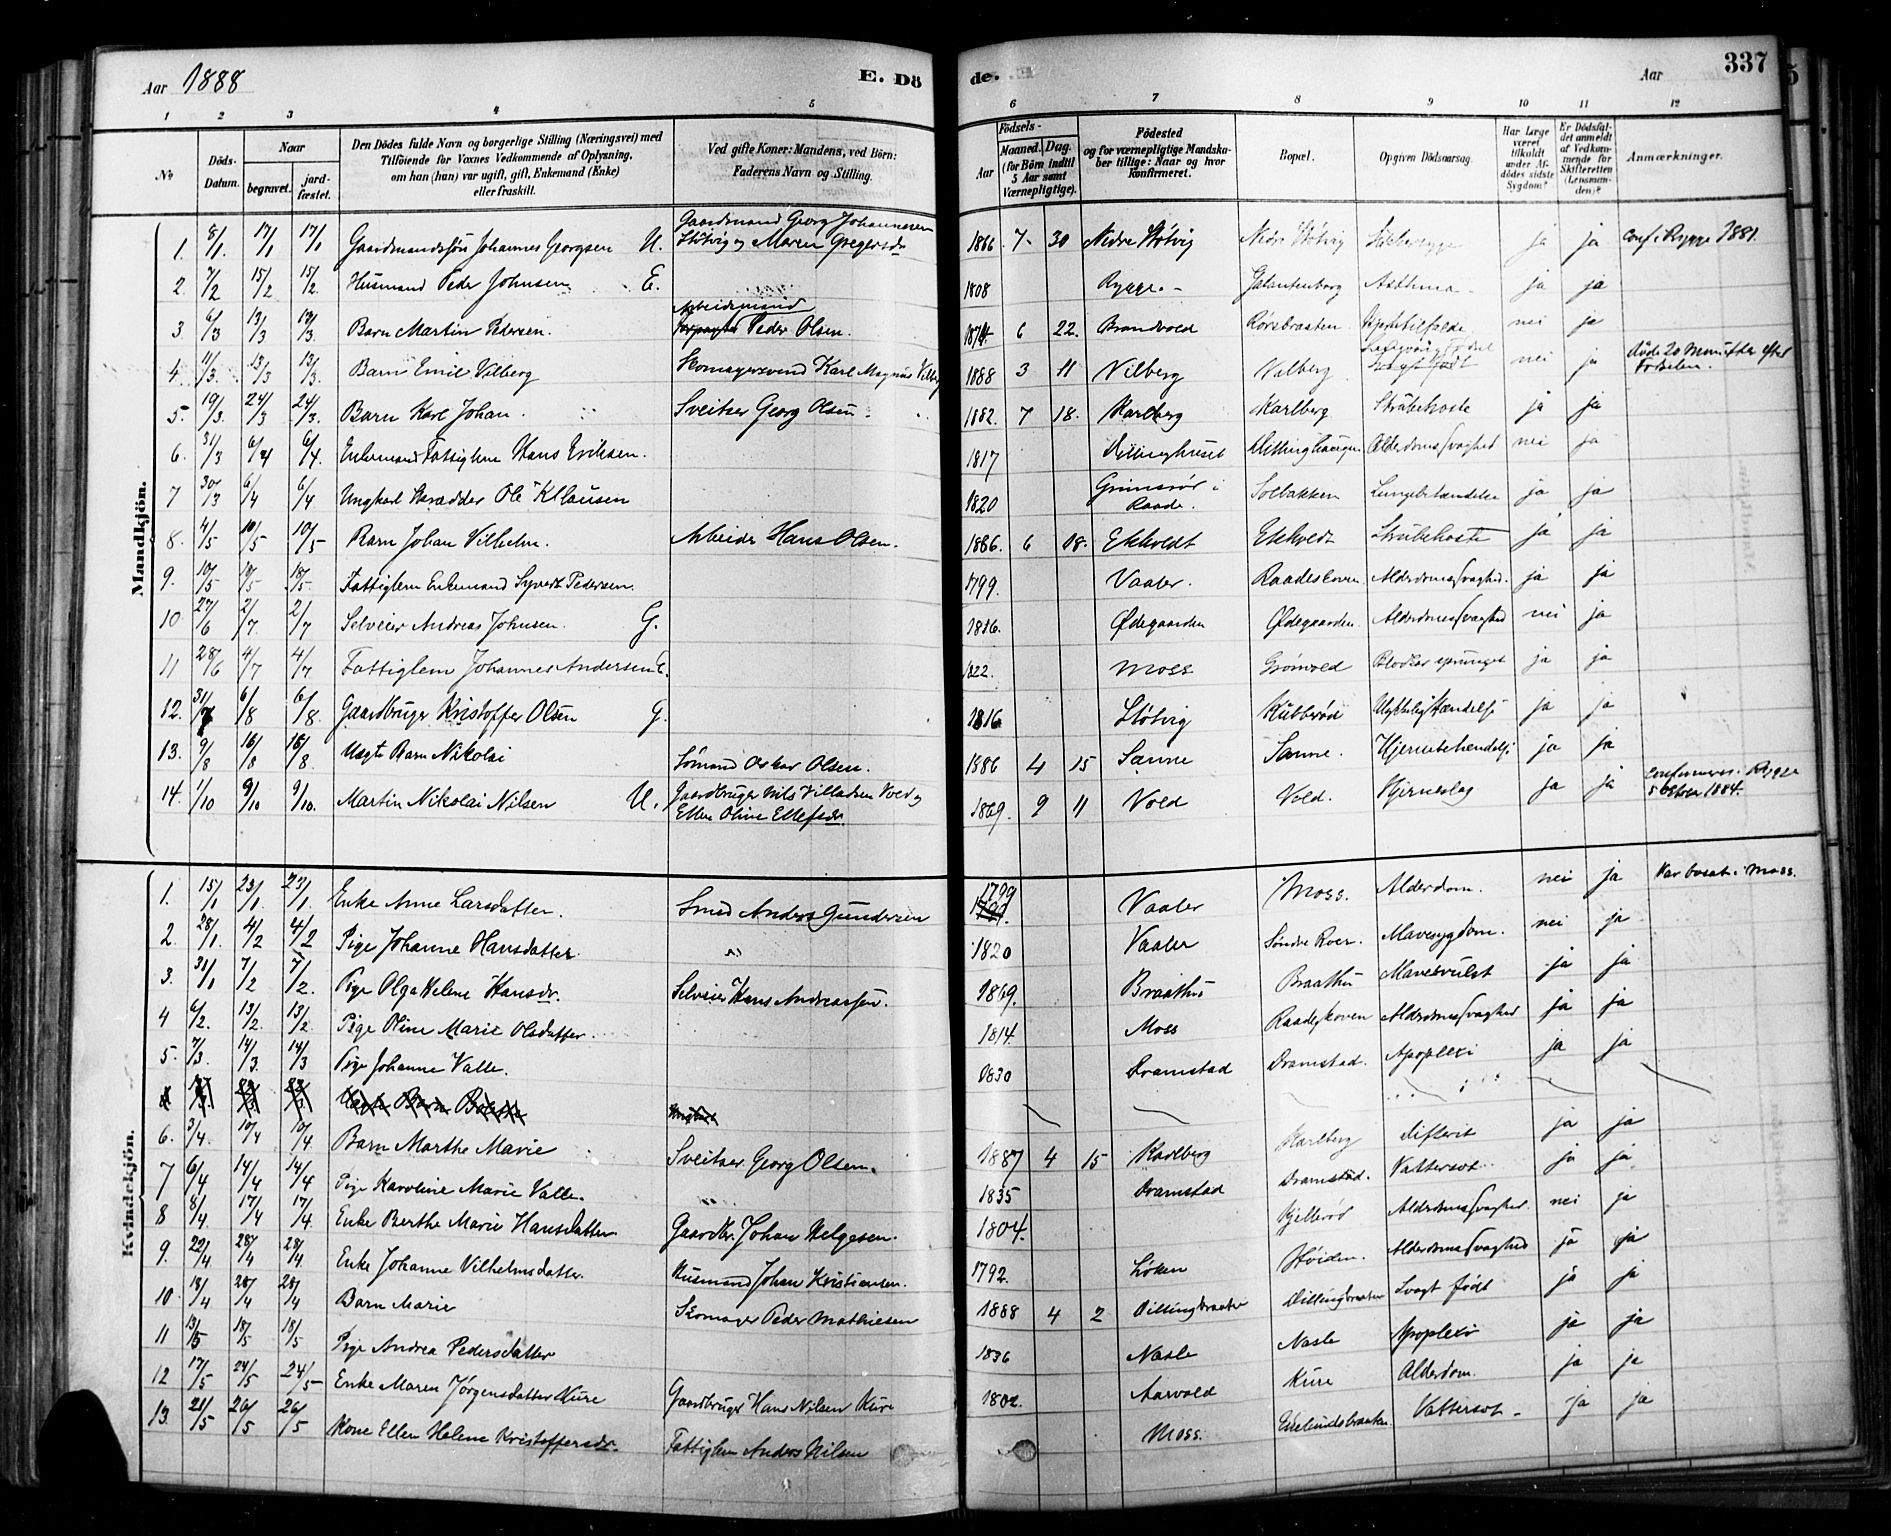 Aar 1888
E. Dö
de.
Aar
337
1 2 3 4 5 6 7 8 9 10 11 12
No
Döds-Datum.
Naar
begravet.
jord-fæstet.
Den Dödes fulde Navn og borgerlige Stilling (Næringsvei) med
Tilföiende for Voxnes Vedkommende af Oplysning,
om han (hun) var ugift, gift, Enkemand (Enke)
eller fraskilt.
Ved gifte Koner: Mandens, ved Börn:
Faderens Navn og Stilling.
Födsels-
Aar
Maaned. Dag.
(for Börn indtil 5 Aar samt Værnepligtige).
Födested
og for værnepligtige Mandskaber tillige: Naar og hvor Konfirmeret.
Bopæl.
Opgiven Dödsaarsag.
Har Læge været tilkaldt under Afdödes sidste Sygdom?
Er Dödsfaldet anmeldt af Vedkommende for Skifteretten (Lensmanden)?
Anmærkninger.
Mandkjön.
1. 8/1. 17/1 17/1 Gaardmandssøn Johannes Georgsen U. Gaardmand Georg Johannesen Støtvig og Maren Gregersdr 1866. 7. 30 Nedre Støtvig Nedre Støtvig ja ja conf. i Rygge 1881.
2. 7/2 15/2 15/2. Husmand Peder Johnsen E. 1808 Rygge. Galantenborg Asthma ja ja
3. 6/3 13/3 13/3. Barn Martin Pedersen. Arbeidsmand Peder Olsen. 1874 6 22. Brandvold Rørebraaten. Hjertetilfælde nei ja
4. 11/3. 13/3 13/3. Barn Emil Vilberg Skomagersvend Karl Magnus Vilberg 1888 3 11 Vilberg Valberg svagt født nei ja Døde 20 Minutter efter Fødselen.
5. 19/3. 24/3 24/3. Barn Karl Johan. Sveitser Georg Olsen 1882. 7 18. Karlberg Karlberg. Strubehoste ja ja
6. 31/3 6/4 6/4. Enkemand Fattiglem Hans Eriksen. 1817 Dillinghuset Dillinghaugen Alderdomssvaghed nei ja
7 30/3 6/4 6/4 Ungkarl Skrædder Ole Klausen 1820 Grimsrør i Raade. Solbakken Lungebetændelse ja ja
8. 4/5 10/5 10/5 Barn Johan Vilhelm. Arbeider Hans Olsen. 1886. 6 18. Ekholdt Ekholdt Strubehoste ja ja
9. 10/5 18/5. Fattiglem Enkemand Syvert Pedersen. 1799. Vaaler. Raadeskoven Alderdomssvaghed. ja ja
10. 27/6 2/7. 2/7 Selveier Andreas Johnsen. G. 1816. Ødegaarden Ødegaarden. Alderdomssvaghed nei ja
11 28/6 4/7 4/7 Fattiglem Johannes Andersen 1822. Moss Grønvold Blodkar sprunget ja ja
12. 31/7 6/8 6/8. Gaardbruger Kristoffer Olsen G. 1816 Støtvig Kubberød Ulykkelig Hændelse ja ja
13. 9/8 16/8 16/8. Uægte Barn Nikolai Sømand Oskar Olsen. 1886 4 15 Sanne Sanne. ja ja
14. 1/10 9/10 9/10. Martin Nikolai Nilsen U. Gaardbruger Nils Villadsen Vold og Ellen Oline Ellefsdr. 1869. 9 11 Vold Vold. Hjerneslag ja ja confirmeret i Rygge 5 Oktober 1884.
Kvindekjön.
1. 15/1 23/1. 23/1. Enke Anne Larsdatter. Smed Anders Gundersen 1799 Vaaler Moss. Alderdom. nei ja Var bosat i Moss.
2. 28/1. 4/2 4/2 Pige Johanne Hansdatter. 1820 Vaaler Søndre Roer. Mavesygdom. nei ja
3. 31/1 7/2 7/2. Pige Olga Helene Hansdr. Selveier Hans Andreassen. 1869. Braathen Braathen Mavesvulst ja ja
4 6/2. 13/2. 13/2 Pige Oline Marie Olsdatter. 1814. Moss Raadeskoven Alderdomssvaghed ja ja
5. 7/3. 14/3. 14/3 Pige Johanne Valle. 1830 Dramstad Dramstad. Apoplexi ja ja
6. 3/4. 10/4 10/4 Barn Marthe Marie Sveitser Georg Olsen. 1887 4 15 Karlberg Karlberg Difterit ja ja
7 6/4 14/4 14/4 Pige Karoline Marie Valle. 1835 Dramstad Dramstad. Vattersot. ja ja
8 8/4. 17/4 17/4. Enke Berthe Marie Hansdatter Gaardbr. Johan Helgesen. 1804. Kjellerød Alderdomssvaghed. nei ja
9. 22/4. 28/4 28/4 Enke Johanne Vilhelmsdatter. Husmand Johan Kristiansen. 1792. Løken Høiden. Alderdomssvaghed ja ja
10. 18/4 28/4 28/4 Barn Marie Skomager Peder Mathiesen 1888 4 2 Dillingbraaten Dillingbraaten Svagt født ja ja
11 13/5 18/5 18/5 Pige Andrea Pedersdatter 1836 Nasle Nasle Apoplexi ja ja
12 17/5 24/5 24/5 Enke Maren Jørgensdatter Kure Gaardbruger Hans Nilsen Kure 1802. Aarvold Kure Alderdom. ja ja
13. 21/5 26/5 26/5 Kone Ellen Helene Kristoffersdr. Fattiglem Anders Nilsen Moss. Vattersot ja ja